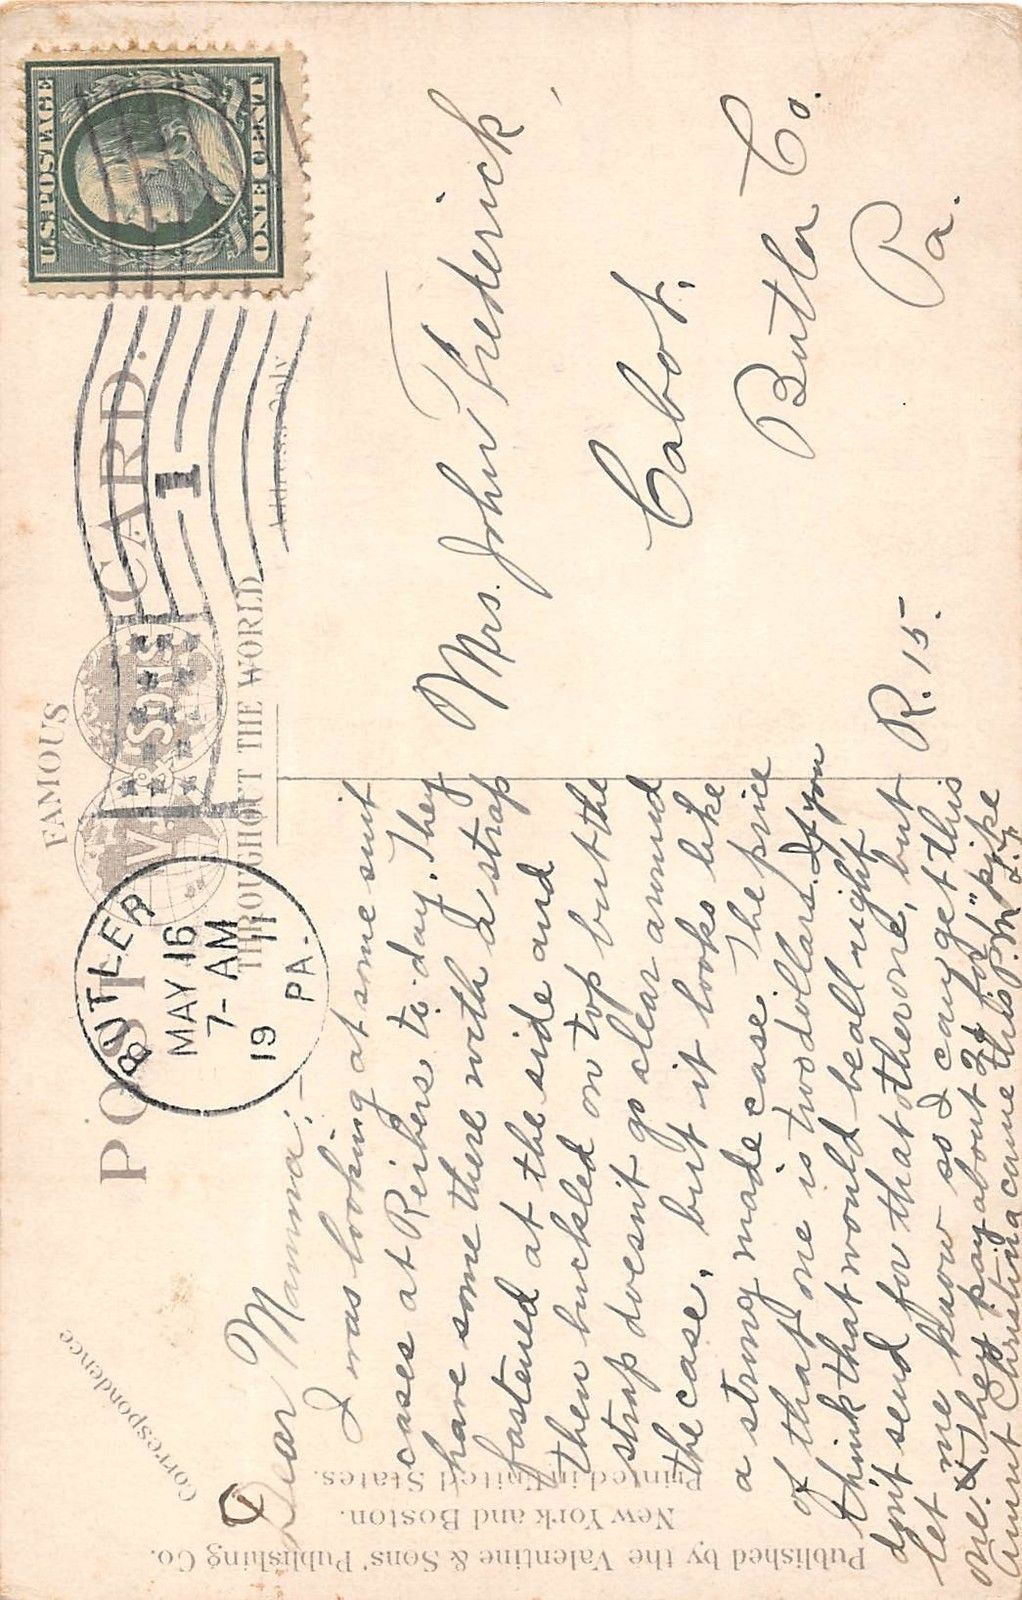 FAMOUS
POST CARD.
V. & SONS
THROUGHOUT THE WORLD
Correspondence
Address Only
U.S. POSTAGE
ONE CENT
BUTLER
MAY 16
7-AM
1911
PA.
1
Dear Mamma:-
I was looking at some suit
cases at Reibers to-day. They
have some there with a strap
fastened at the side and
then buckled on top but the
strap doesn't go clear around
the case, but it looks like
a strong made case. The price
of that one is two dollars. If you
think that would be all right
don't send for that other one, but
let me know so I can get this
one. They pay about 24 for "pike
Aunt Christina came this P.M.
Mrs. John Frederick
Cabot,
Butler Co.
Pa.
R. 15.
Published by the Valentine & Sons' Publishing Co.
New York and Boston.
Printed in United States.